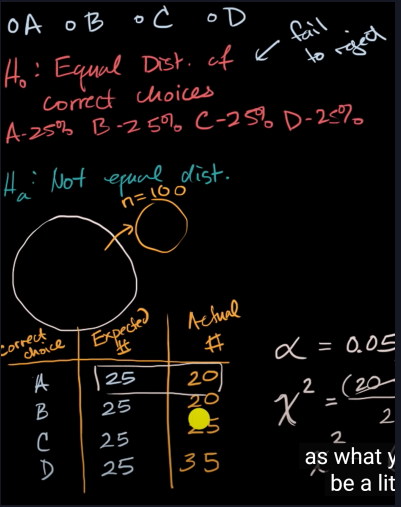 A B C D
fail
to reject
H₀: Equal Dist. of
correct choices
A-25% B-25% C-25% D-25%
Hₐ: Not equal dist.
n=100
correct choice Expected # Actual #
A 25 20
B 25 20
C 25 25
D 25 35
α = 0.05
χ² = (20
2
2
as what y
be a lit